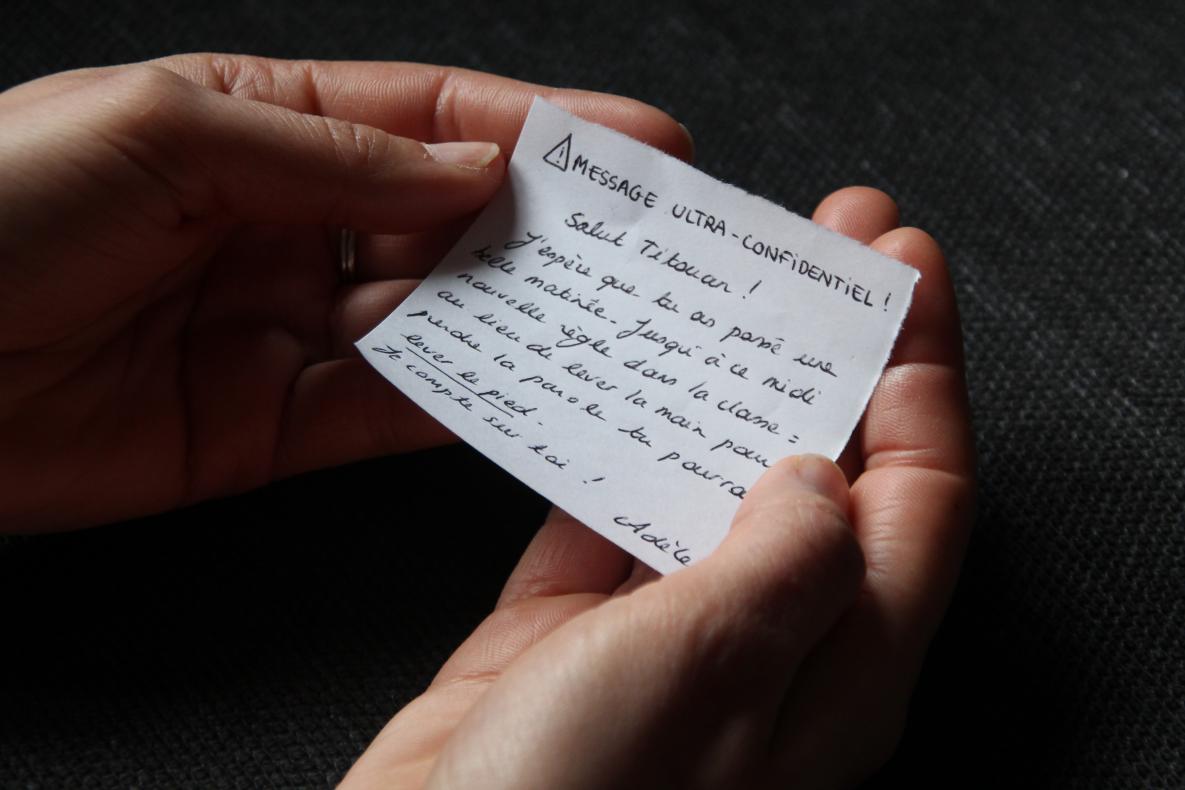 ⚠ MESSAGE ULTRA-CONFIDENTIEL !
Salut Titouan !
J'espère que tu as passé une
belle matinée. Jusqu'à ce midi
nouvelle règle dans la classe :
au lieu de lever la main pour
prendre la parole tu pourra
lever le pied.
Je compte sur toi !
Adèle